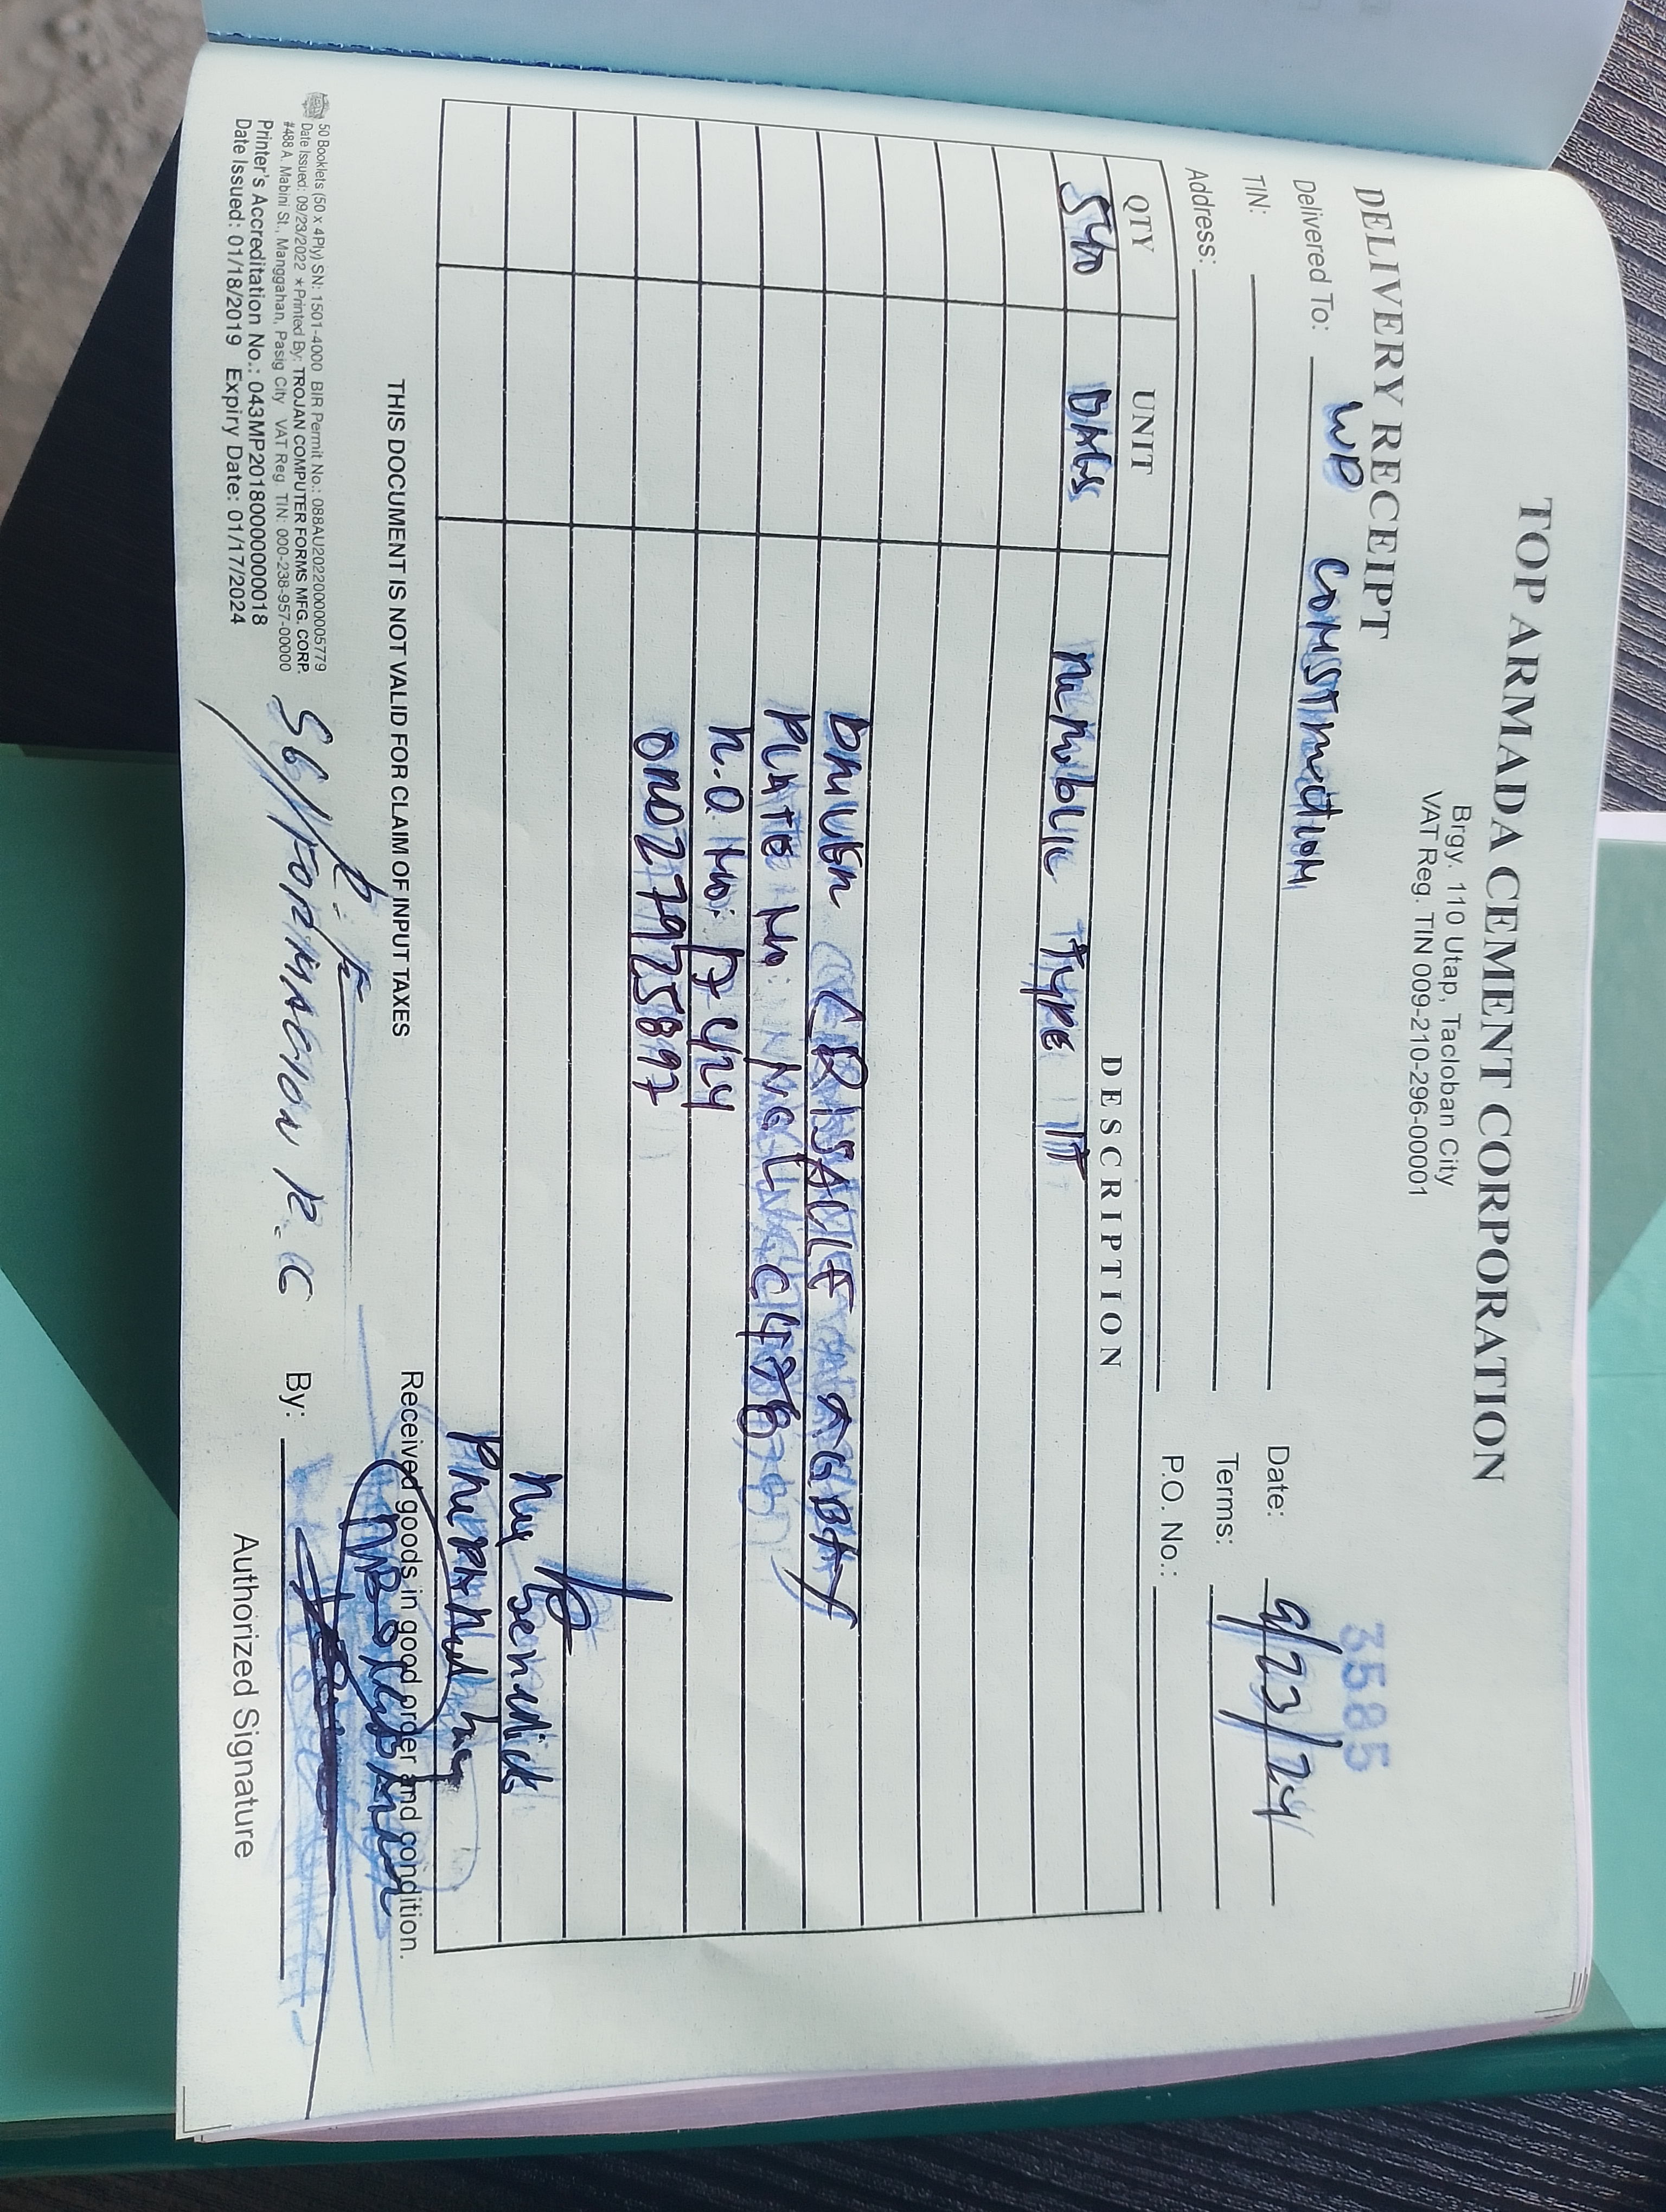 TOP ARMADA CEMENT CORPORATION
Brgy. 110 Utap, Tacloban City
VAT Reg. TIN 009-210-296-00001
DELIVERY RECEIPT
3585
Delivered To: WP Construction
Date: 9/23/24
TIN:
Terms:
Address:
P.O. No.:
QTY UNIT DESCRIPTION
540 BAGS Republic Type 1T
Driver
Plate No:
R.O No: 17424
DR027925897
THIS DOCUMENT IS NOT VALID FOR CLAIM OF INPUT TAXES
Received goods in good order and condition.
50 Booklets (50 x 4Ply) SN: 1501-4000 BIR Permit No.: 088AU20220000005779
Date Issued: 09/23/2022 *Printed By: TROJAN COMPUTER FORMS MFG. CORP.
#488 A. Mabini St., Manggahan, Pasig City VAT Reg. TIN: 000-238-957-00000
Printer's Accreditation No.: 043MP20180000000018
Date Issued: 01/18/2019 Expiry Date: 01/17/2024
SG/FORMACION R.C
By:
Authorized Signature